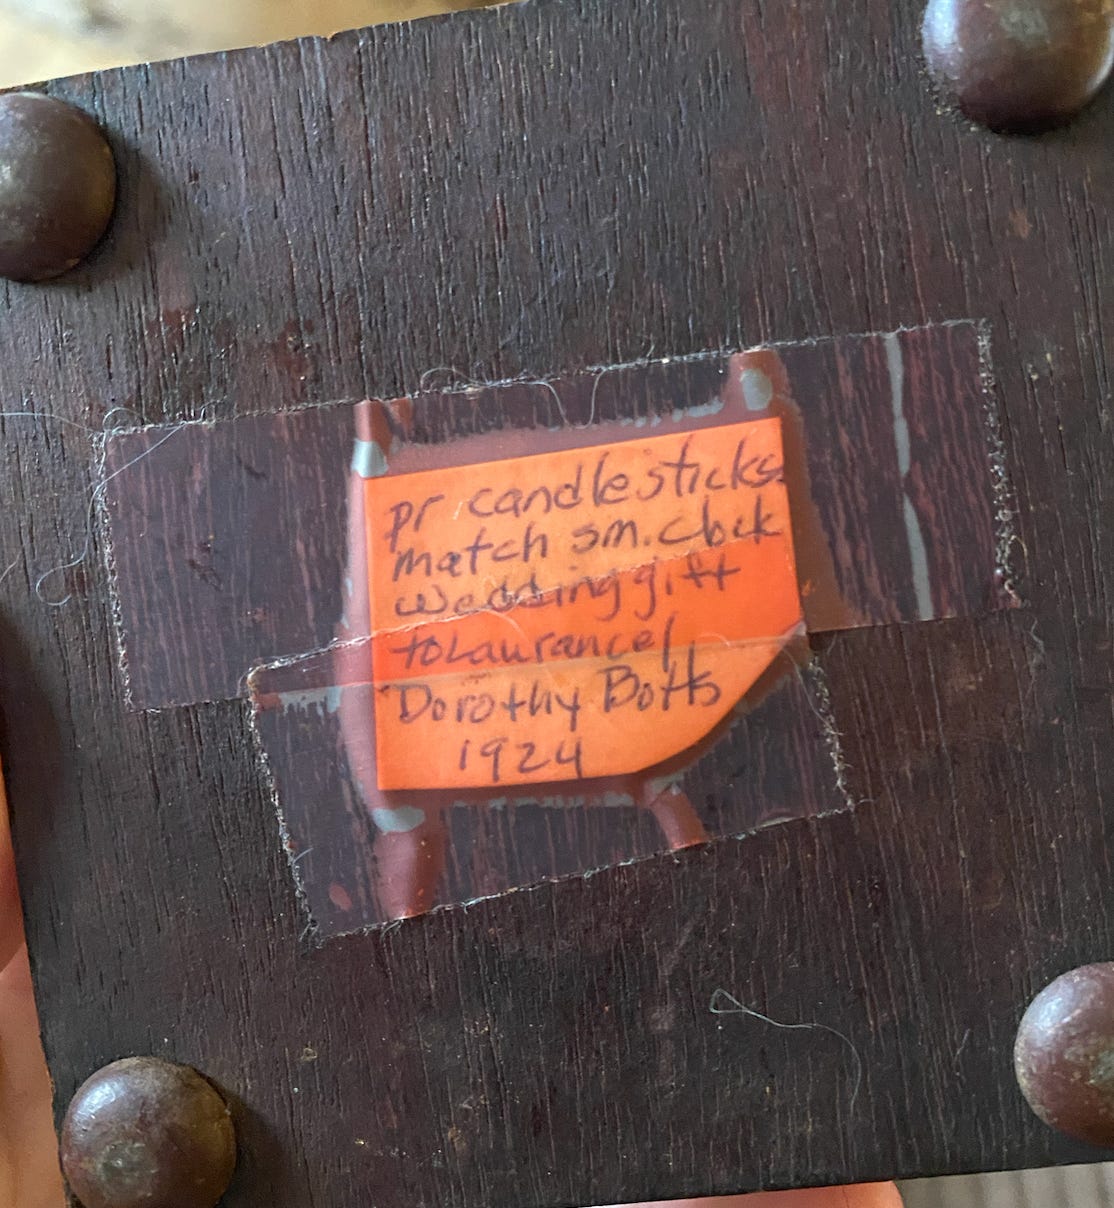 pr candlesticks
match sm. clock
wedding gift
to Laurance/
Dorothy Botts
1924